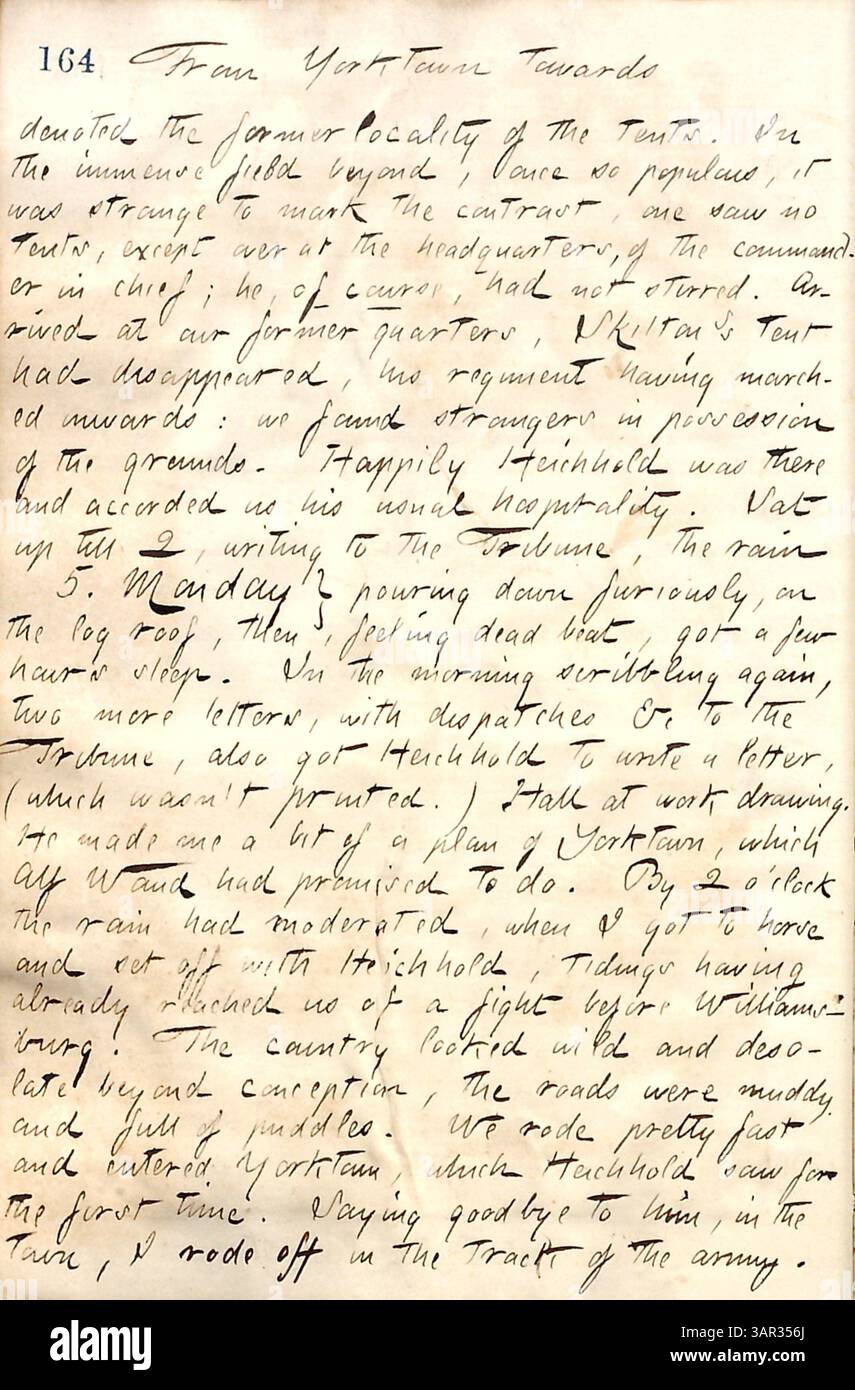 164 From Yorktown towards
denoted the former locality of the tents. In
the immense field beyond, once so populous, it
was strange to mark the contrast, one saw no
tents, except over at the headquarters, of the command-
er in chief; he, of course, had not stirred. Ar-
rived at our former quarters, Skilton's tent
had disappeared, his regiment having march-
ed onwards: we found strangers in possession
of the grounds. Happily Heichhold was there
and accorded us his usual hospitality. Sat
up till 2, writing to the Tribune, the rain
5. Monday } pouring down furiously, on
the log roof, then, feeling dead beat, got a few
hours sleep. In the morning scribbling again,
two more letters, with dispatches &c to the
Tribune, also got Heichhold to write a letter,
(which wasn't printed.) Hall at work, drawing.
He made me a bit of a plan of Yorktown, which
Alf Waud had promised to do. By 2 o'clock
the rain had moderated, when I got to horse
and set off with Heichhold, tidings having
already reached us of a fight before Williams-
burg. The country looked wild and deso-
late beyond conception, the roads were muddy
and full of puddles. We rode pretty fast
and entered Yorktown, which Heichhold saw for
the first time. Saying goodbye to him, in the
town, I rode off in the track of the army.
alamy
Image ID: 3AR356J
www.alamy.com